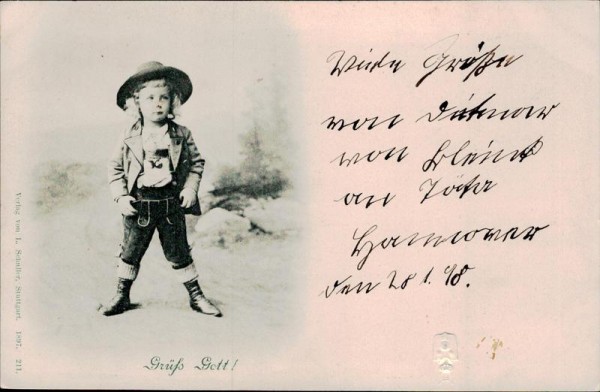 Viele Grüße
von Dietmar
von Kleint
an Töta
Hannover
den 28 1. 98.
Grüß Gott!
Verlag vom L. Schaller, Stuttgart. 1897. 211.